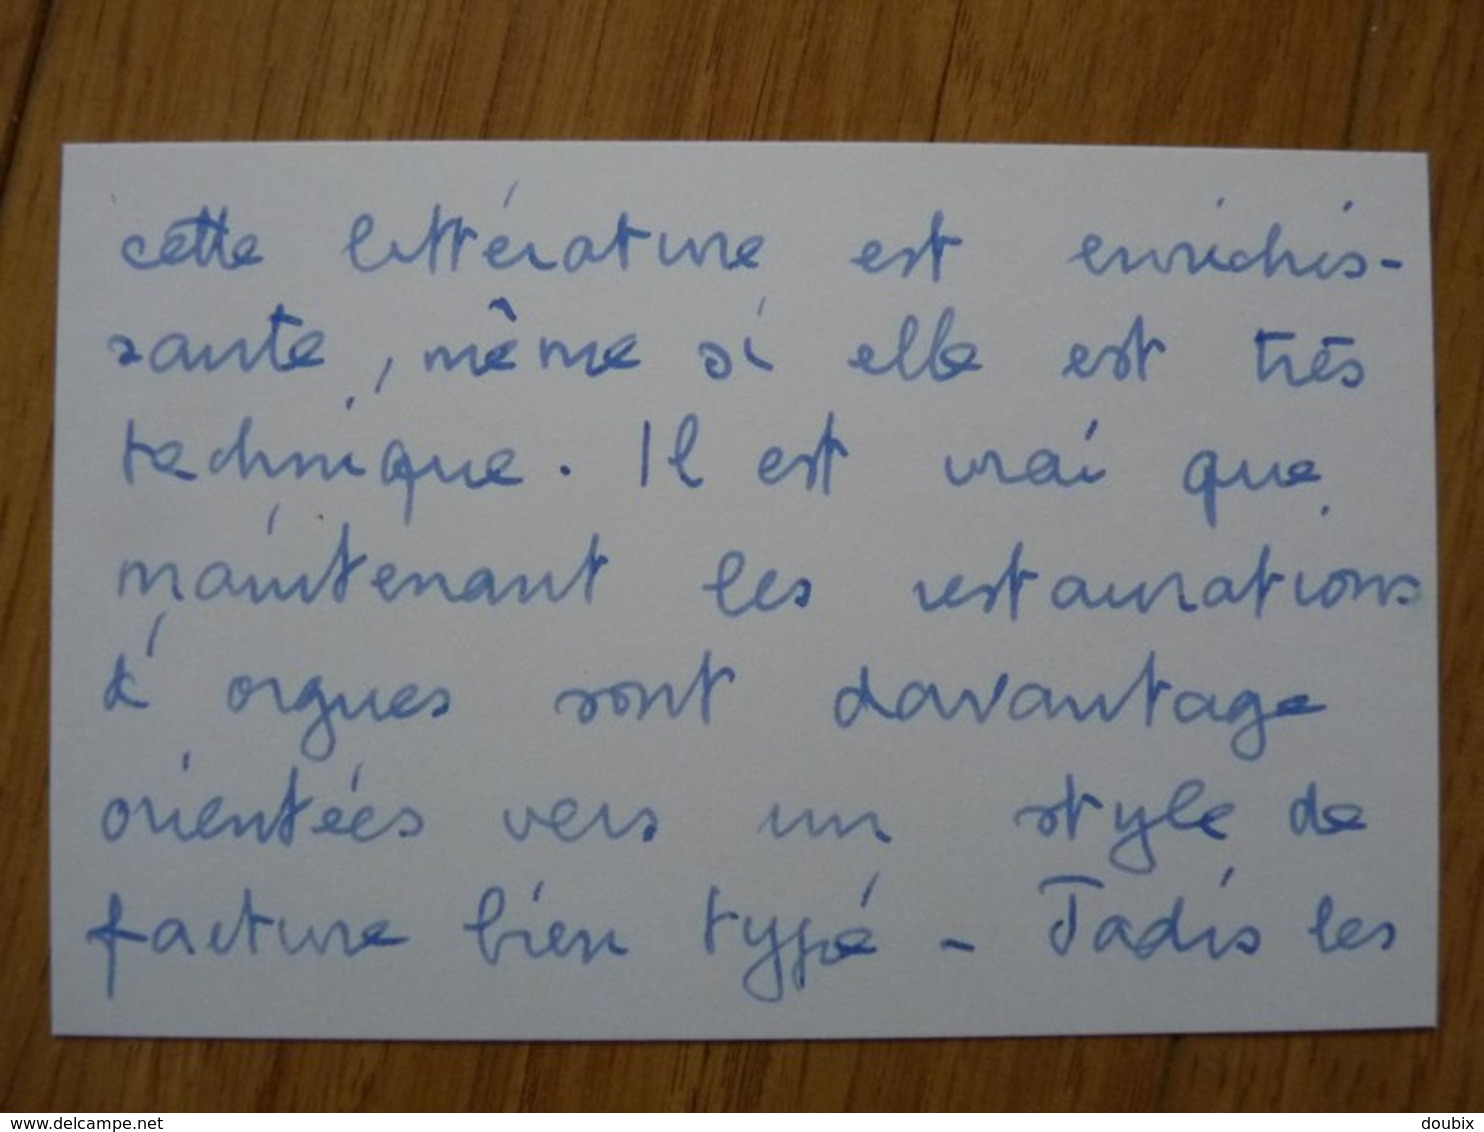 cette littérature est enrichis-
sante, même si elle est très
technique. Il est vrai que
maintenant les restaurations
d'orgues sont davantage
orientées vers un style de
facture bien typé - Jadis les
www.delcampe.net
doubix